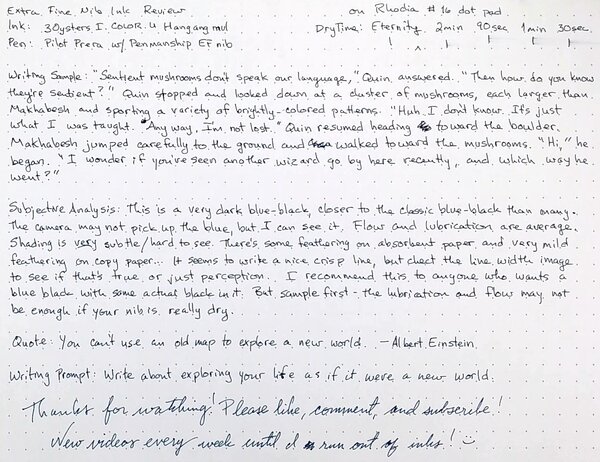 Extra Fine Nib Ink Review on Rhodia #16 dot pad
Ink: 3Oysters I.COLOR.U Hangang mul DryTime: Eternity 2min 90sec 1min 30sec.
Pen: Pilot Prera w/ Penmanship EF nib
Writing Sample: "Sentient mushrooms don't speak our language," Quin answered. "Then how do you know
they're sentient?" Quin stopped and looked down at a cluster of mushrooms, each larger than
Makhabesh and sporting a variety of brightly-colored patterns. "Huh. I don't know. It's just
what I was taught. Any way, I'm not lost." Quin resumed heading toward the boulder.
Makhabesh jumped carefully to the ground and walked toward the mushrooms. "Hi," he
began. "I wonder if you've seen another wizard go by here recently, and which way he
went?"
Subjective Analysis: This is a very dark blue-black, closer to the classic blue-black than many.
The camera may not pick up the blue, but I can see it. Flow and lubrication are average.
Shading is very subtle/hard to see. There's some feathering on absorbent paper and very mild
feathering on copy paper... It seems to write a nice crisp line, but check the line width image
to see if that's true or just perception. I recommend this to anyone who wants a
blue black with some actual black in it. But sample first - the lubrication and flow may not
be enough if your nib is really dry.
Quote: You can't use an old map to explore a new world. - Albert Einstein
Writing Prompt: Write about exploring your life as if it were a new world.
Thanks for watching! Please like, comment, and subscribe!
New videos every week until I run out of inks! :)